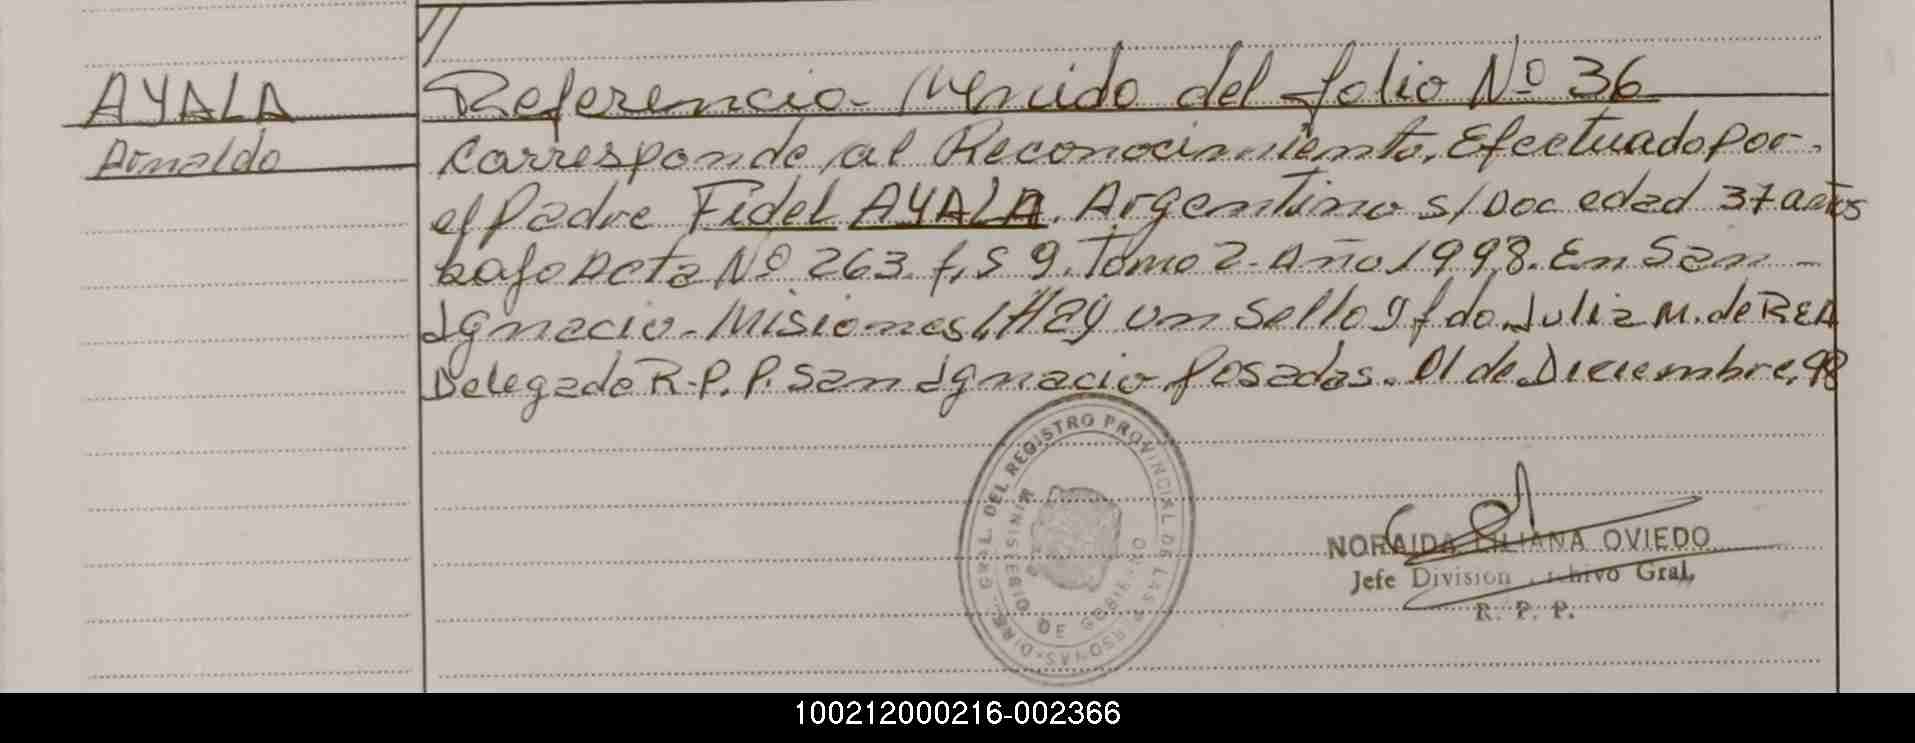 AYALA
Ronaldo
Referencia Venido del folio Nº 36
Corresponde al Reconocimiento, Efectuado por
el Padre Fidel AYALA. Argentino s/Doc edad 37 años
bajo Acta Nº 263. f,s 9. Tomo 2. Año 1998. En San
Ignacio - Misiones, Hay un sello y fdo. Julia M. de REA
Delegada R.P.P. San Ignacio Posadas. 01 de Diciembre, 98
DIREC. GRAL. DEL REGISTRO PROVINCIAL DE LAS PERSONAS
MINISTERIO DE GOBIERNO
NORAIDA LILIANA OVIEDO
Jefe Division Archivo Gral,
R. P. P.
100212000216-002366